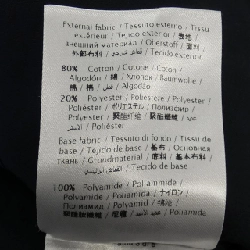 External fabric / Tessuto esterno / Tissu
extérieur / Tejido exterior / 表地 /
внешний материал / Oberstoff / 面料 /
外部布料 / Tecido exterior /
80% Cotton / Cotone / Coton /
Algodón / 綿 / Хлопок / Baumwolle /
棉 / 棉 / Algodão /
20% Polyester / Poliestere / Polyester /
Poliéster / ポリエステル / Полиэстер /
Polyester / 聚酯纤维 / 聚酯纖維 /
Poliéster /
Base fabric / Tessuto di fondo / Tissu de
base / Tejido de base / 基布 / Основная
ткань / Grundmaterial / 基布 /
/ Tecido de base /
100% Polyamide / Poliammide /
Polyamide / Poliamida / ナイロン /
Полиамид / Polyamid / 锦纶 /
/ Poliamida /